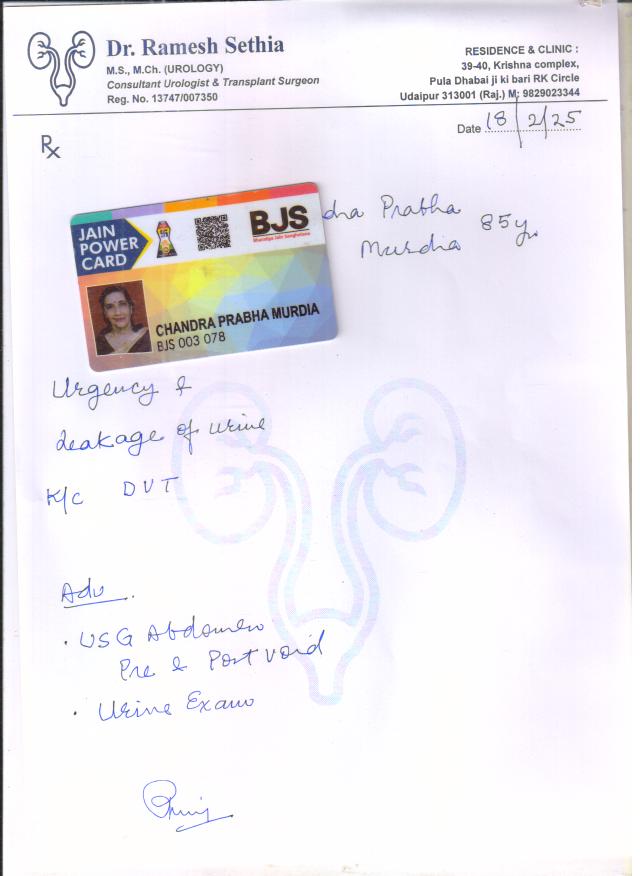 Dr. Ramesh Sethia
M.S., M.Ch. (UROLOGY)
Consultant Urologist & Transplant Surgeon
Reg. No. 13747/007350
RESIDENCE & CLINIC :
39-40, Krishna complex,
Pula Dhabai ji ki bari RK Circle
Udaipur 313001 (Raj.) M: 9829023344
Date 18/2/25
Rx
dra Prabha
Murdia 85y
JAIN
POWER
CARD
BJS
Bharatiya Jain Sanghatana
CHANDRA PRABHA MURDIA
BJS 003 078
Urgency &
Leakage of urine
K/c DVT
Adv.
• USG Abdomen
Pre & Post void
• Urine Exam